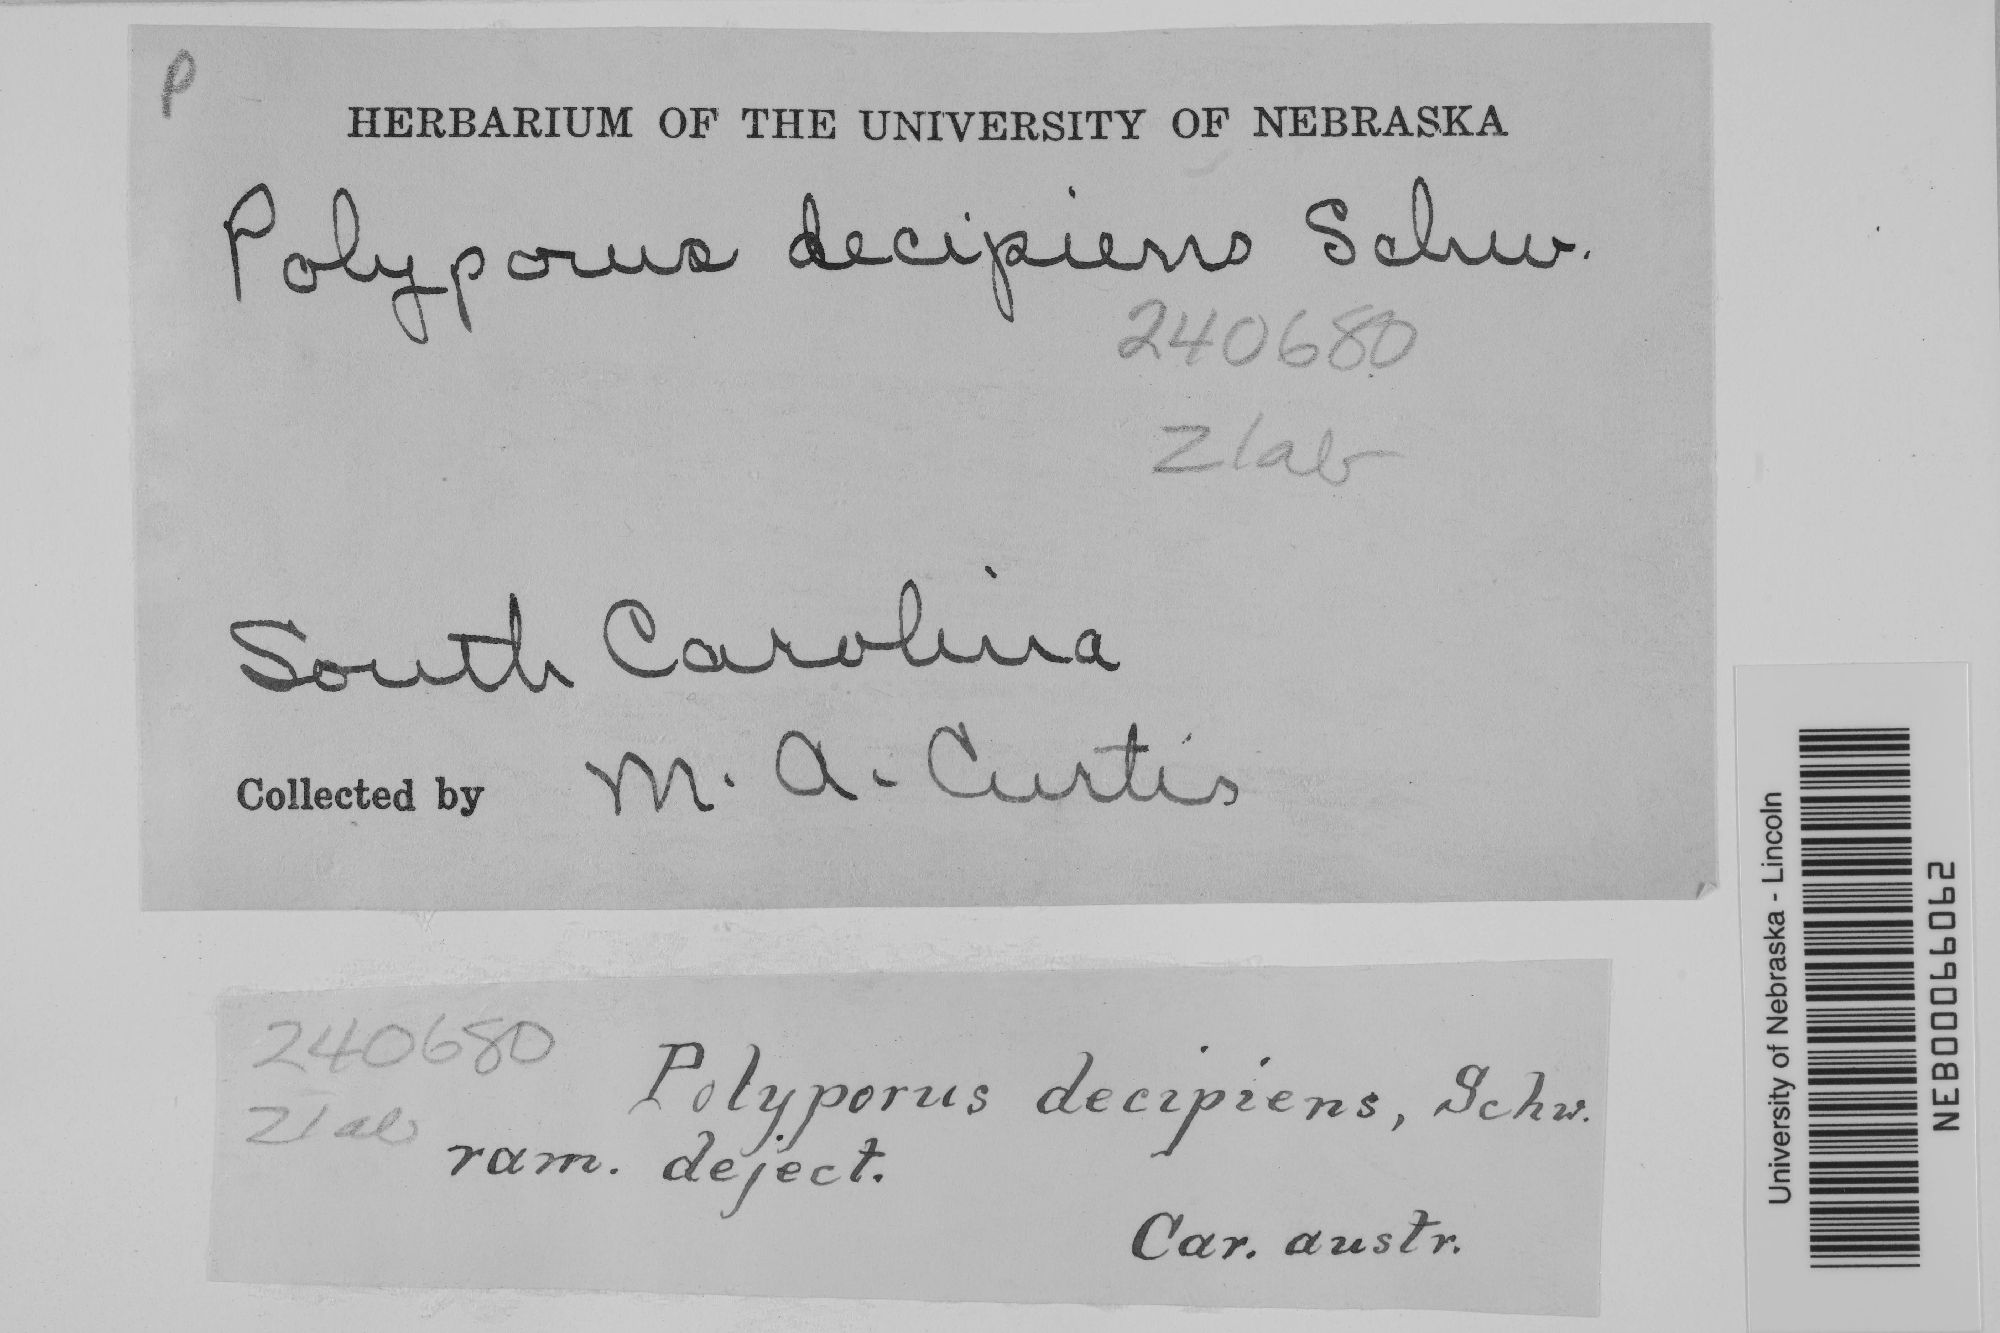 P
HERBARIUM OF THE UNIVERSITY OF NEBRASKA
Polyporus decipiens Schw.
240680
Zlab
South Carolina
Collected by M. A. Curtis
240680
Zlab
Polyporus decipiens, Schw.
ram. deject.
Car. austr.
University of Nebraska - Lincoln
NEB0066062